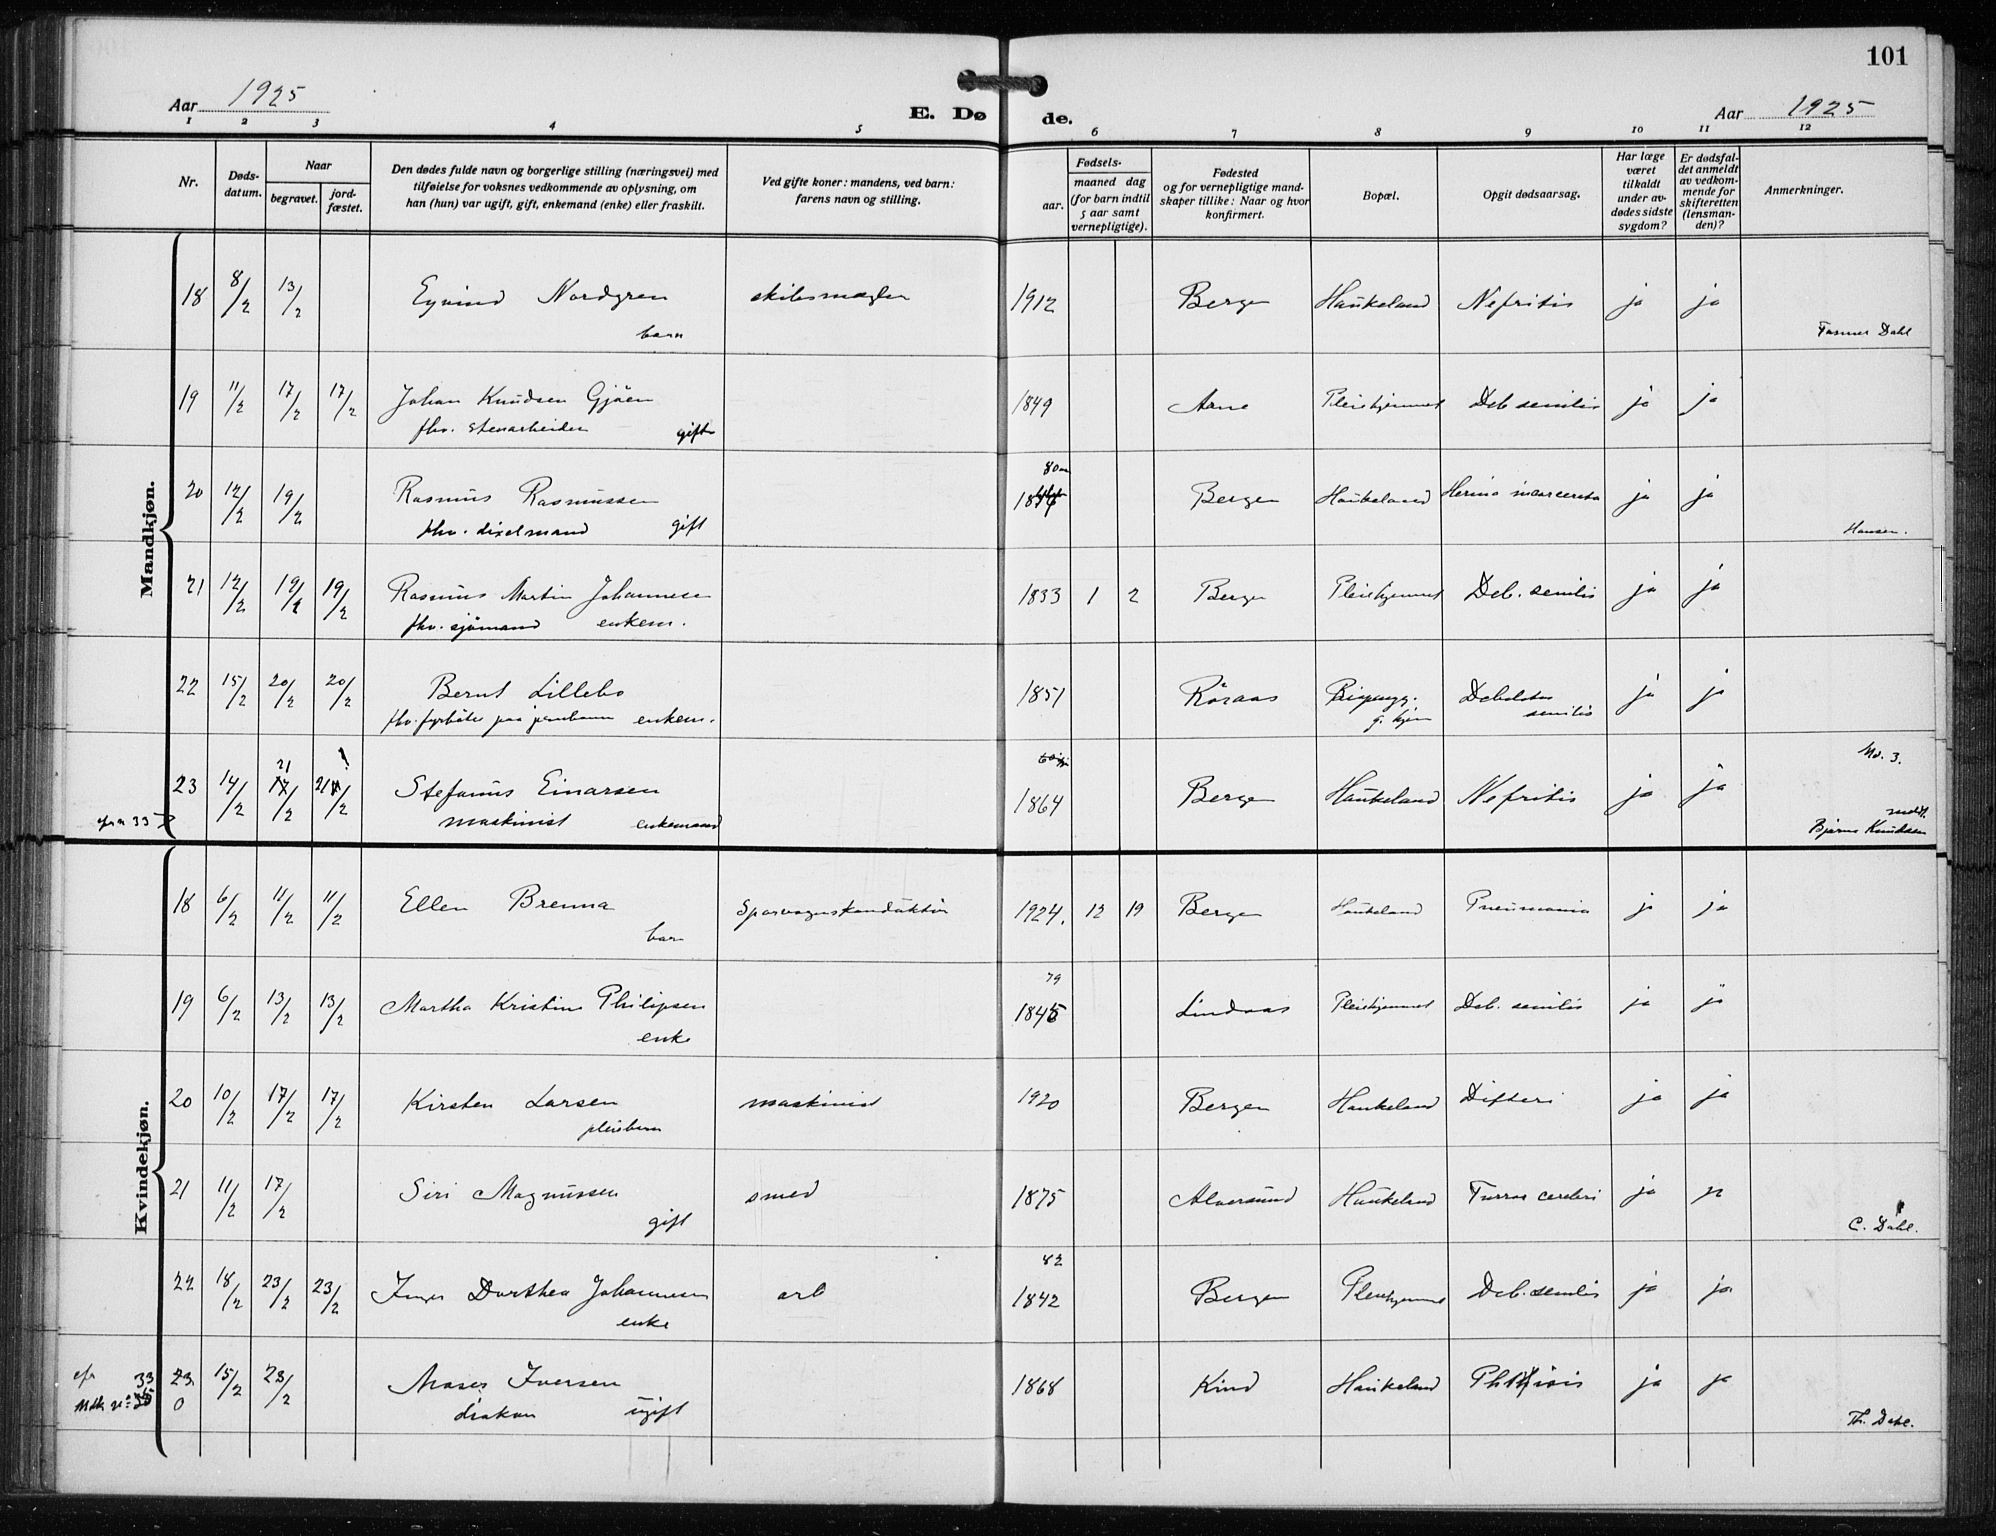 101
Aar 1925
E. Dø de.
Aar 1925
1 2 3 4 5 6 7 8 9 10 11 12
Nr.
Døds-
datum.
Naar
begravet.
jord-
fæstet.
Den dødes fulde navn og borgerlige stilling (næringsvei) med
tilføielse for voksnes vedkommende av oplysning, om
han (hun) var ugift, gift, enkemand (enke) eller fraskilt.
Ved gifte koner: mandens, ved barn:
farens navn og stilling.
Fødsels-
aar.
maaned dag
(for barn indtil
5 aar samt
vernepligtige).
Fødested
og for vernepligtige mand-
skaper tillike: Naar og hvor
konfirmert.
Bopæl.
Opgit dødsaarsag.
Har læge
været
tilkaldt
under av-
dødes sidste
sygdom?
Er dødsfal-
det anmeldt
av vedkom-
mende for
skifteretten
(lensman-
den)?
Anmerkninger.
Mandkjøn.
18 8/2 13/2 Eyvind Nordgren skibsmægler 1912 Bergen Haukeland Nefritis ja ja
barn Fasmer Dahl
19 11/2 17/2 17/2 Johan Knudsen Gjøen 1849 Arne Pleiehjemmet Deb senilis ja ja
fhv. stenarbeider gift
80
20 12/2 19/2 Rasmus Rasmussen Bergen Haukeland ja ja
fhv. gift Hansen.
21 12/2 19/2 19/2 Rasmus Martin Johannesen 1833 1 2 Bergen Pleiehjemmet Deb. senilis ja ja
fhv. sjømand enkem.
22 15/2 20/2 20/2 Bernt Lillebo 1851 Röraas ja ja
fhv. fyrbøter paa jernbanen enkem. g. hjem senilis
Md. 3.
23 14/2 21/2 Stefanus Einarsen 1864 Bergen Haukeland Nefritis ja ja
maskinist enkemand
33 Bjarne Knudsen
Kvindekjøn.
18 6/2 11/2 11/2 Ellen Brenna Sporvognskonduktør 1924. 12 19 Bergen Haukeland Pneumonia ja ja
barn
79
19 6/2 13/2 13/2 Martha Kristine Philipsen 1845 Lindaas Pleiehjemmet Deb. senilis ja ja
enke
20 10/2 17/2 17/2 Kirsten Larsen maskinist 1920 Bergen Haukeland Difteri ja ja
pleiebarn
21 11/2 17/2 Siri Magnussen smed 1875 Alversund Haukeland ja ja
gift C. Dahl.
82
22 18/2 23/2 23/2 Inger Dorthea Johannesen arb 1842 Bergen Pleiehjemmet Deb. senilis ja ja
enke
33 23 15/2 23/2 Moses Iversen 1868 Kind Haukeland Phthisis ja ja
0 diakon ugift Th. Dahl.